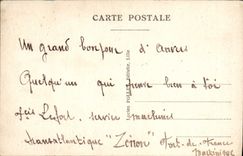 CARTE POSTALE
Un grand bonjour d'Anvers
Quelqu'un qui pense bien à toi
Lefort, service machines
transatlantique "Zénon" Fort-de-France
Martinique